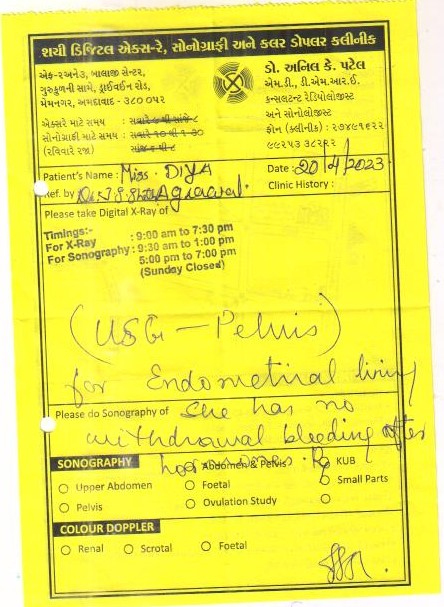 શચી ડિજિટલ એક્સ-રે, સોનોગ્રાફી અને કલર ડોપલર કલીનીક
એફ-૨અને૩, બાલાજી સેન્ટર,
ગુરુકુળની સામે, ડ્રાઈવઈન રોડ,
મેમનગર, અમદાવાદ - ૩૮૦ ૦૫૨
એક્સરે માટે સમય : સવારે ૯ થી સાંજે ૮
સોનોગ્રાફી માટે સમય : સવારે ૧૦ થી ૧-૩૦
(રવિવારે રજા)
ડો. અનિલ કે. પટેલ
એમ.ડી., ડી.એમ.આર.ઈ.
કન્સલટન્ટ રેડિયોલોજીસ્ટ
અને સોનોલોજીસ્ટ
ફોન (ક્લીનીક) : ૨૭૪૯૧૬૨૨
૯૯૨૫૩ ૩૮૨૨૯
Patient's Name : Miss. DIYA Date : 20/4/2023
Ref. by Agrawal. Clinic History :
Please take Digital X-Ray of
Timings:-
For X-Ray : 9:00 am to 7:30 pm
For Sonography : 9:30 am to 1:00 pm
5:00 pm to 7:00 pm
(Sunday Closed)
(USG - Pelvis)
for Endometiral lining
Please do Sonography of She has no
withdrawal bleeding after
hormones. Rx
SONOGRAPHY Abdomen & Pelvis KUB
Upper Abdomen Foetal Small Parts
Pelvis Ovulation Study
COLOUR DOPPLER
Renal Scrotal Foetal